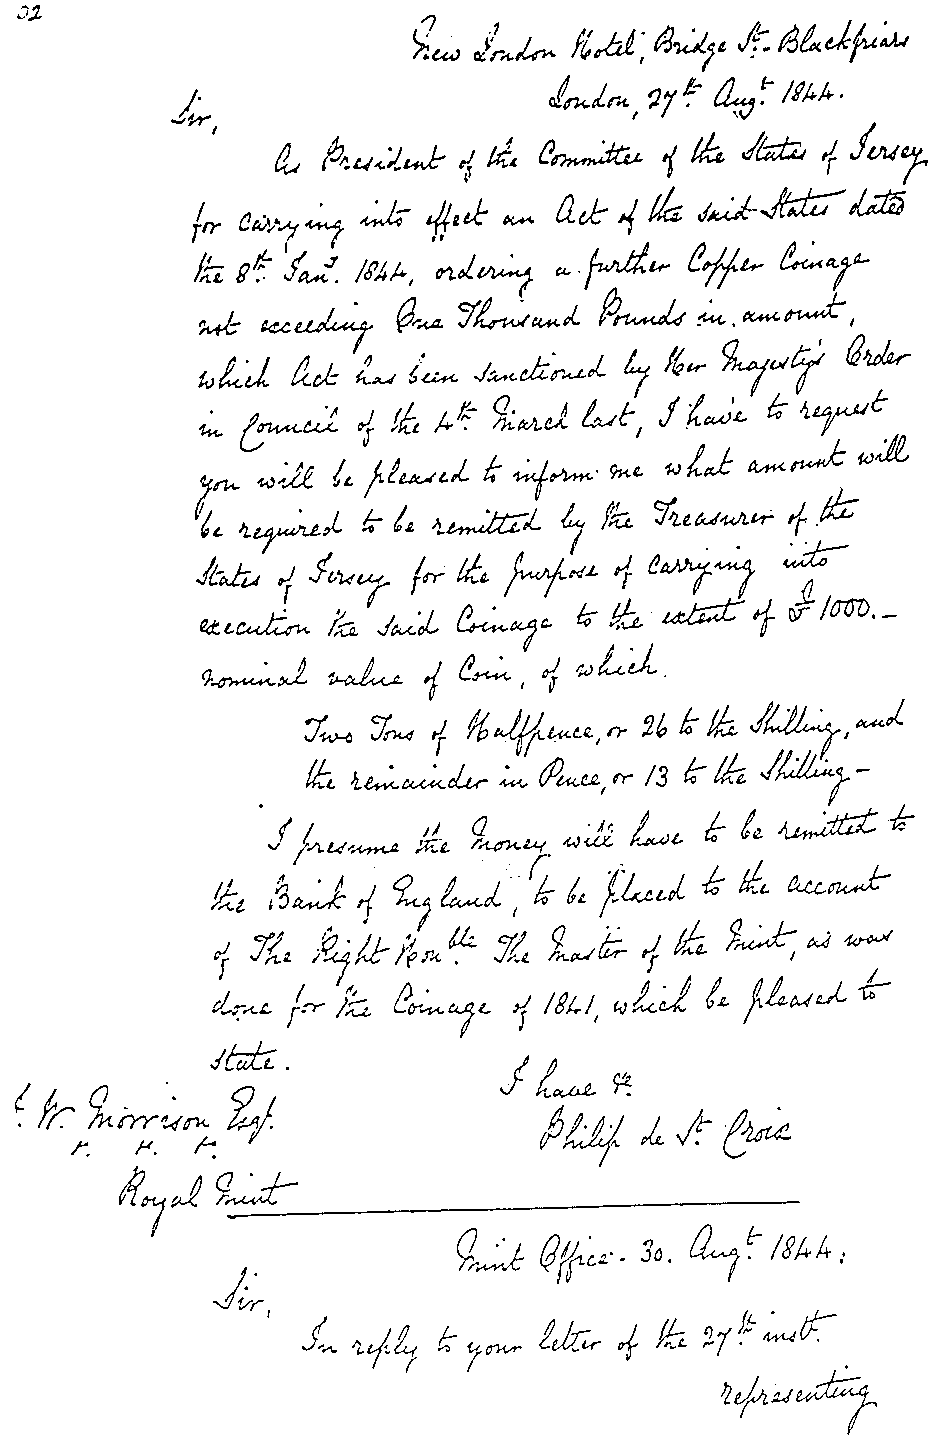 32
New London Hotel, Bridge St. Blackfriars
London, 27th Augt. 1844.
Sir,
As President of the Committee of the States of Jersey
for carrying into effect an Act of the said States dated
the 8th Jany. 1844, ordering a further Copper Coinage
not exceeding One Thousand Pounds in amount,
which Act has been sanctioned by Her Majesty's Order
in Council of the 4th March last, I have to request
you will be pleased to inform me what amount will
be required to be remitted by the Treasurer of the
States of Jersey for the purpose of carrying into
execution the said Coinage to the extent of £1000.-
nominal value of Coin, of which.
Two Tons of Halfpence, or 26 to the Shilling, and
the remainder in Pence, or 13 to the Shilling -
I presume the Money will have to be remitted to
the Bank of England, to be placed to the account
of The Right Honble. The Master of the Mint, as was
done for the Coinage of 1841, which be pleased to
state.
I have &c.
W. Morrison Esqr.
Philip de St. Croix
Royal Mint
Mint Office - 30. Augt. 1844.
Sir,
In reply to your letter of the 27th instt.
representing